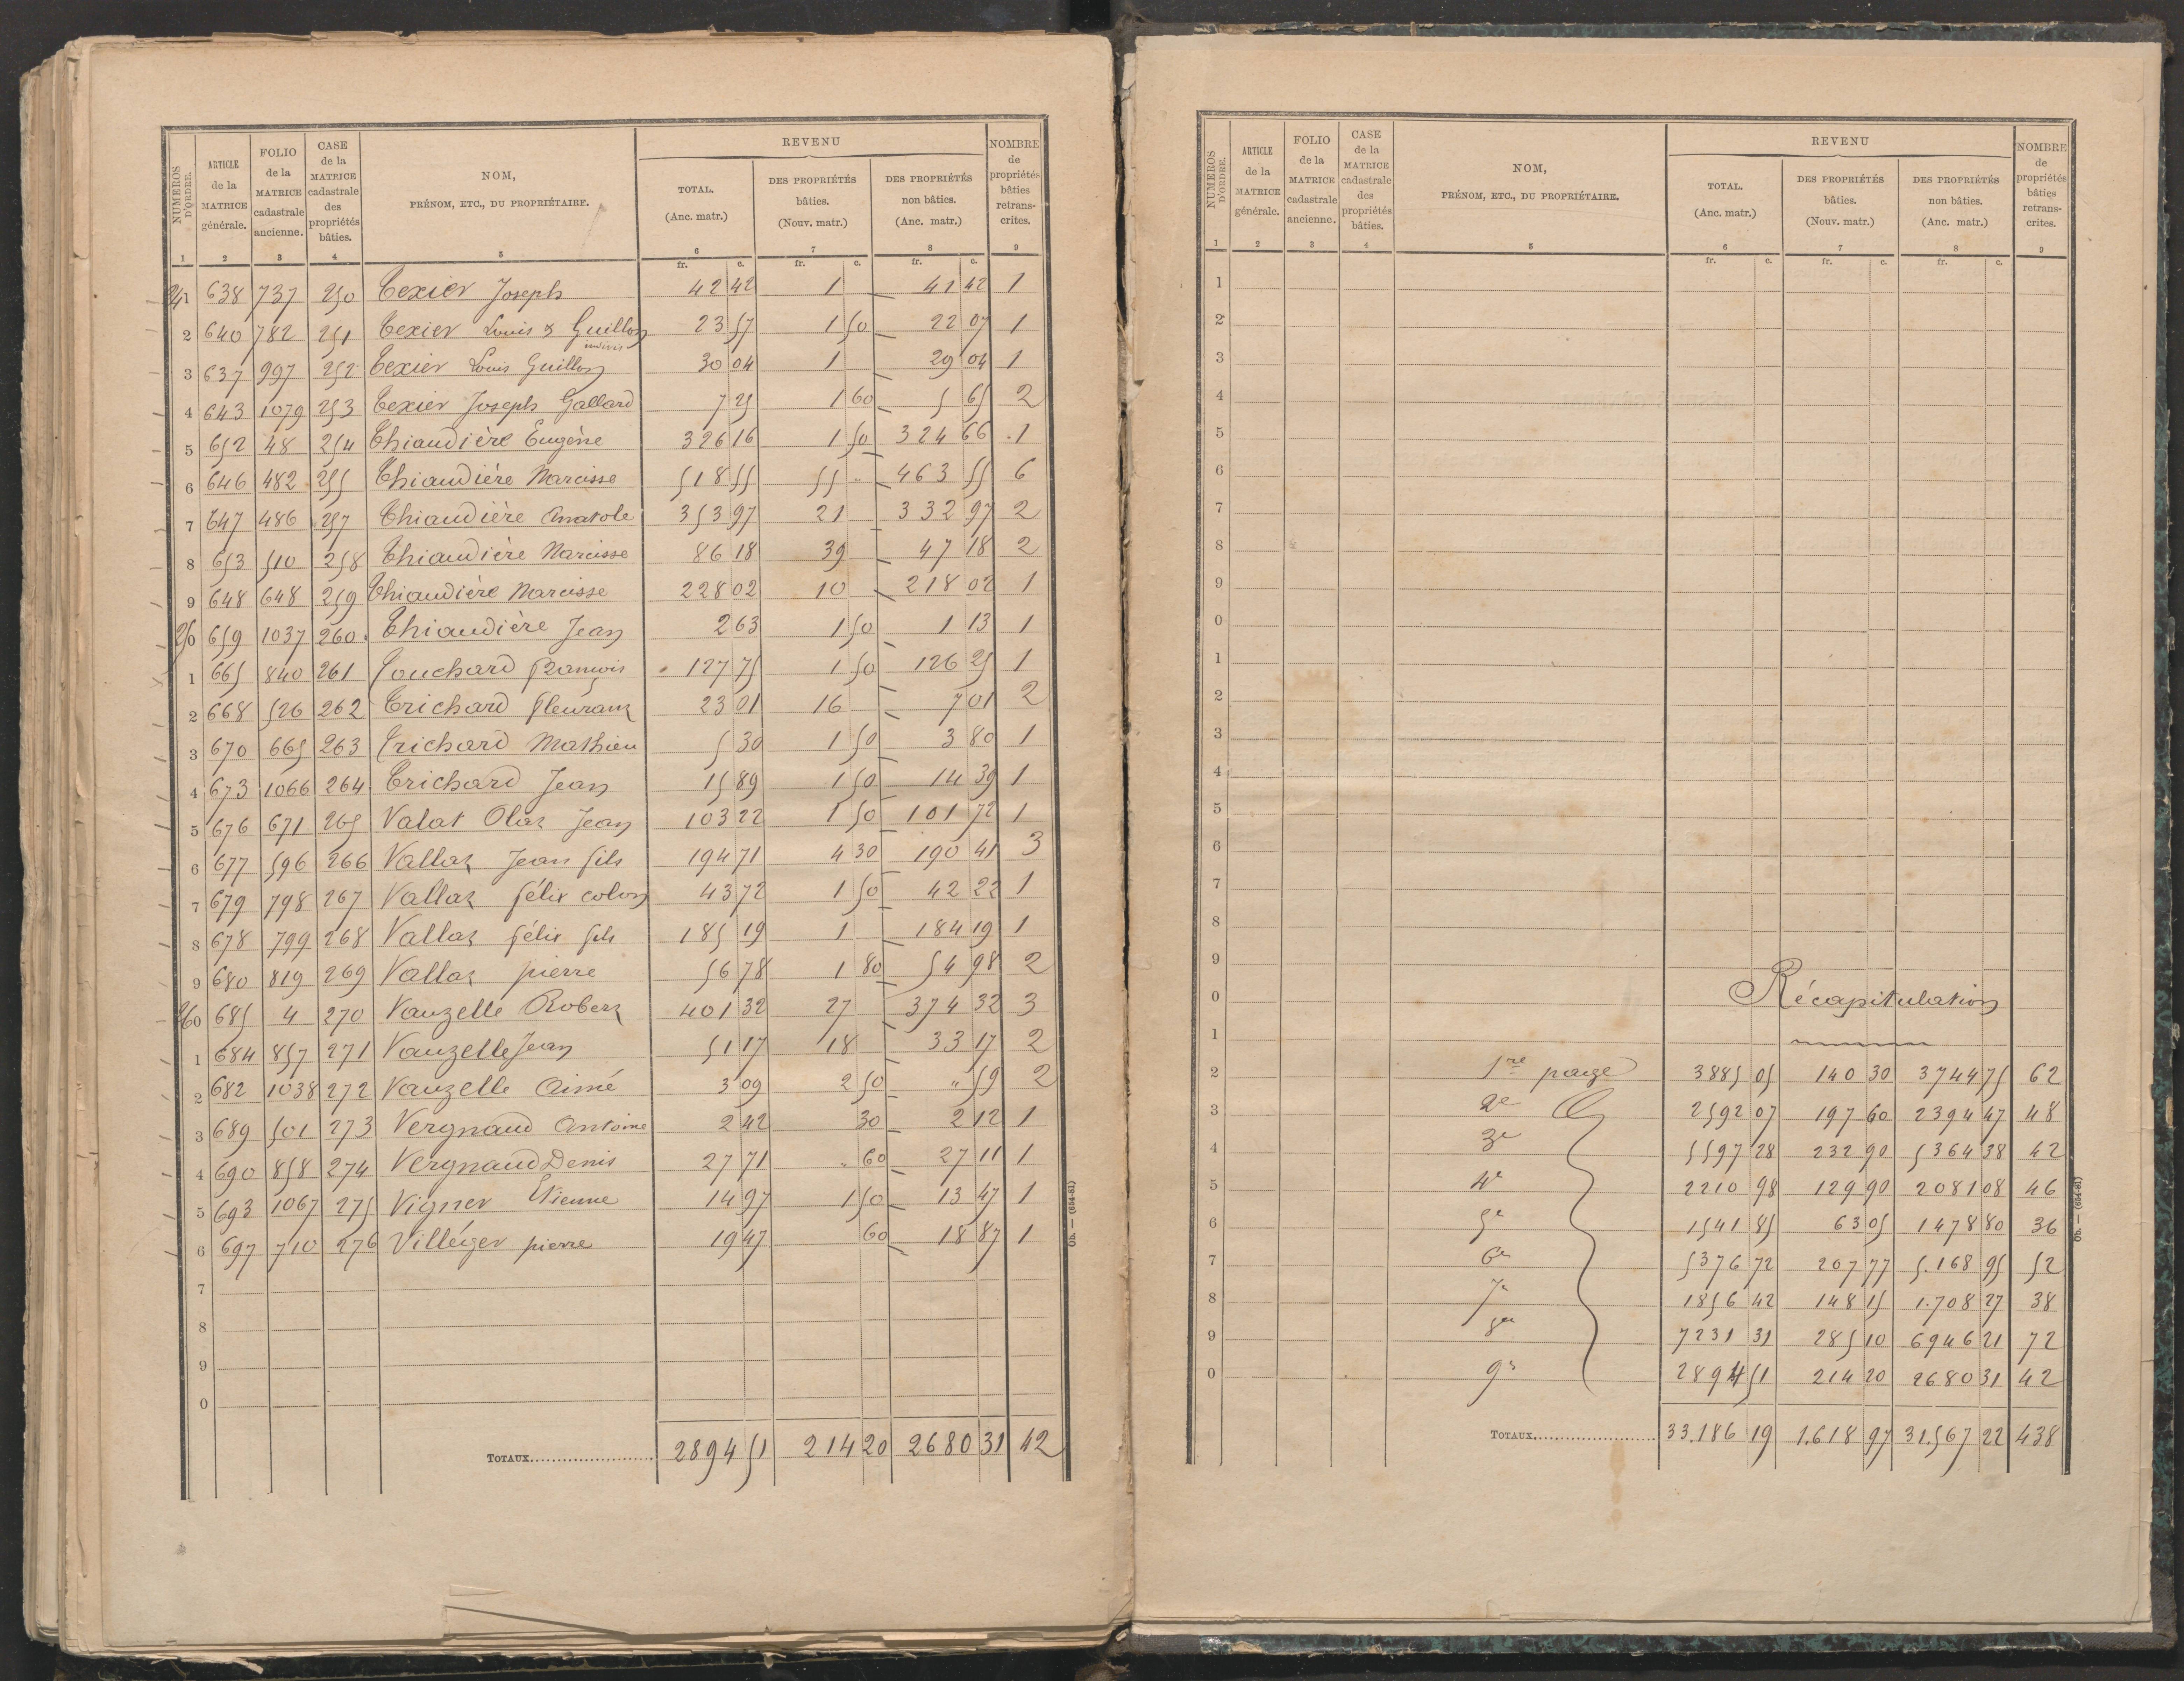 NUMÉROS D'ORDRE. ARTICLE de la MATRICE générale. FOLIO de la MATRICE cadastrale ancienne. CASE de la MATRICE cadastrale des propriétés bâties. NOM, PRÉNOM, ETC., DU PROPRIÉTAIRE. REVENU TOTAL. (Anc. matr.) DES PROPRIÉTÉS bâties. (Nouv. matr.) DES PROPRIÉTÉS non bâties. (Anc. matr.) NOMBRE de propriétés bâties retranscrites.
1 2 3 4 5 6 7 8 9
fr. c. fr. c. fr. c.
241 638 737 250 Texier Joseph 42 42 1 41 42 1
2 640 782 251 Texier Louis & Guillon indivis 23 57 1 50 22 07 1
3 637 997 252 Texier Louis Guillon 30 04 1 29 04 1
4 643 1079 253 Texier Joseph Gallard 7 25 1 60 5 65 2
5 652 48 254 Thiaudière Eugène 326 16 1 50 324 66 1
6 646 482 255 Thiaudière Narcisse 518 55 55 " 463 55 6
7 647 486 257 Thiaudière Anatole 353 97 21 332 97 2
8 653 510 258 Thiaudière Narcisse 86 18 39 47 18 2
9 648 648 259 Thiaudière Narcisse 228 02 10 218 02 1
250 659 1037 260 Thiaudière Jean 2 63 1 50 1 13 1
1 665 840 261 Touchard François 127 75 1 50 126 25 1
2 668 526 262 Trichard fleurant 23 01 16 7 01 2
3 670 665 263 Trichard Mathieu 5 30 1 50 3 80 1
4 673 1066 264 Trichard Jean 15 89 1 50 14 39 1
5 676 671 265 Valat Jean 103 22 1 50 101 72 1
6 677 596 266 Vallat Jean fils 194 71 4 30 190 41 3
7 679 798 267 Vallat félix colon 43 72 1 50 42 22 1
8 678 799 268 Vallat félix fils 185 19 1 184 19 1
9 680 819 269 Vallat pierre 56 78 1 80 54 98 2
260 685 4 270 Vauzelle Robert 401 32 27 374 32 3
1 684 857 271 Vauzelle Jean 51 17 18 33 17 2
2 682 1038 272 Vauzelle Aimé 3 09 2 50 " 59 2
3 689 501 273 Vergnaud Antoine 2 42 30 2 12 1
4 690 858 274 Vergnaud Denis 27 71 " 60 27 11 1
5 693 1067 275 Vigner Etienne 14 97 1 50 13 47 1
6 697 710 276 Villéger pierre 19 47 60 18 87 1
7
8
9
0
TOTAUX 2894 51 214 20 2680 31 42
Ob. — (654-81)
NUMÉROS D'ORDRE. ARTICLE de la MATRICE générale. FOLIO de la MATRICE cadastrale ancienne. CASE de la MATRICE cadastrale des propriétés bâties. NOM, PRÉNOM, ETC., DU PROPRIÉTAIRE. REVENU TOTAL. (Anc. matr.) DES PROPRIÉTÉS bâties. (Nouv. matr.) DES PROPRIÉTÉS non bâties. (Anc. matr.) NOMBRE de propriétés bâties retranscrites.
1 2 3 4 5 6 7 8 9
fr. c. fr. c. fr. c.
1
2
3
4
5
6
7
8
9
0
1
2
3
4
5
6
7
8
9
0 Récapitulation
1
2 1re page 3885 05 140 30 3744 75 62
3 2e 2592 07 197 60 2394 47 48
4 3e 5597 28 232 90 5364 38 42
5 4e 2210 98 129 90 2081 08 46
6 5e 1541 85 63 05 1478 80 36
7 6e 5376 72 207 77 5.168 95 52
8 7e 1856 42 148 15 1.708 27 38
9 8e 7231 31 285 10 6946 21 72
0 9e 2894 51 214 20 2680 31 42
TOTAUX 33.186 19 1.618 97 31.567 22 438
Ob. — (654-81)